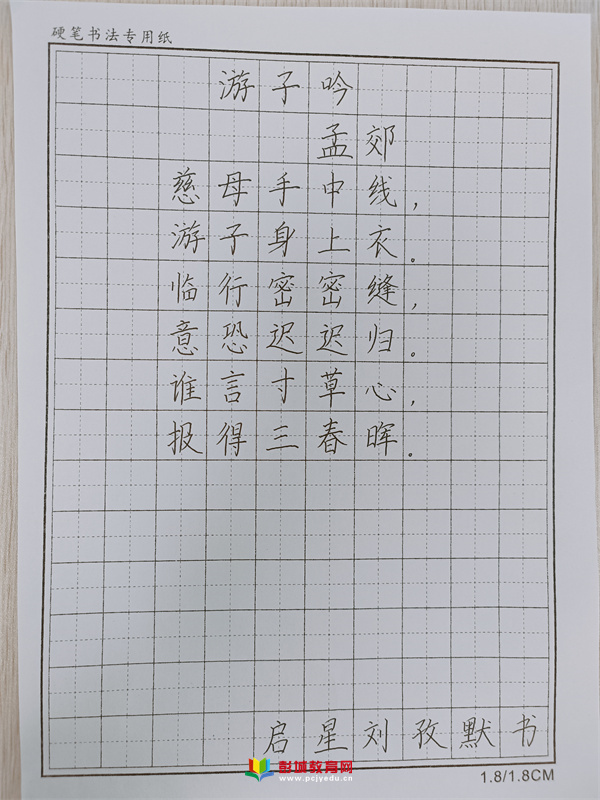 硬笔书法专用纸
游子吟
孟郊
慈母手中线，
游子身上衣。
临行密密缝，
意恐迟迟归。
谁言寸草心，
报得三春晖。
启星刘孜默书
彭城教育网
www.pcjyedu.cn
1.8/1.8CM